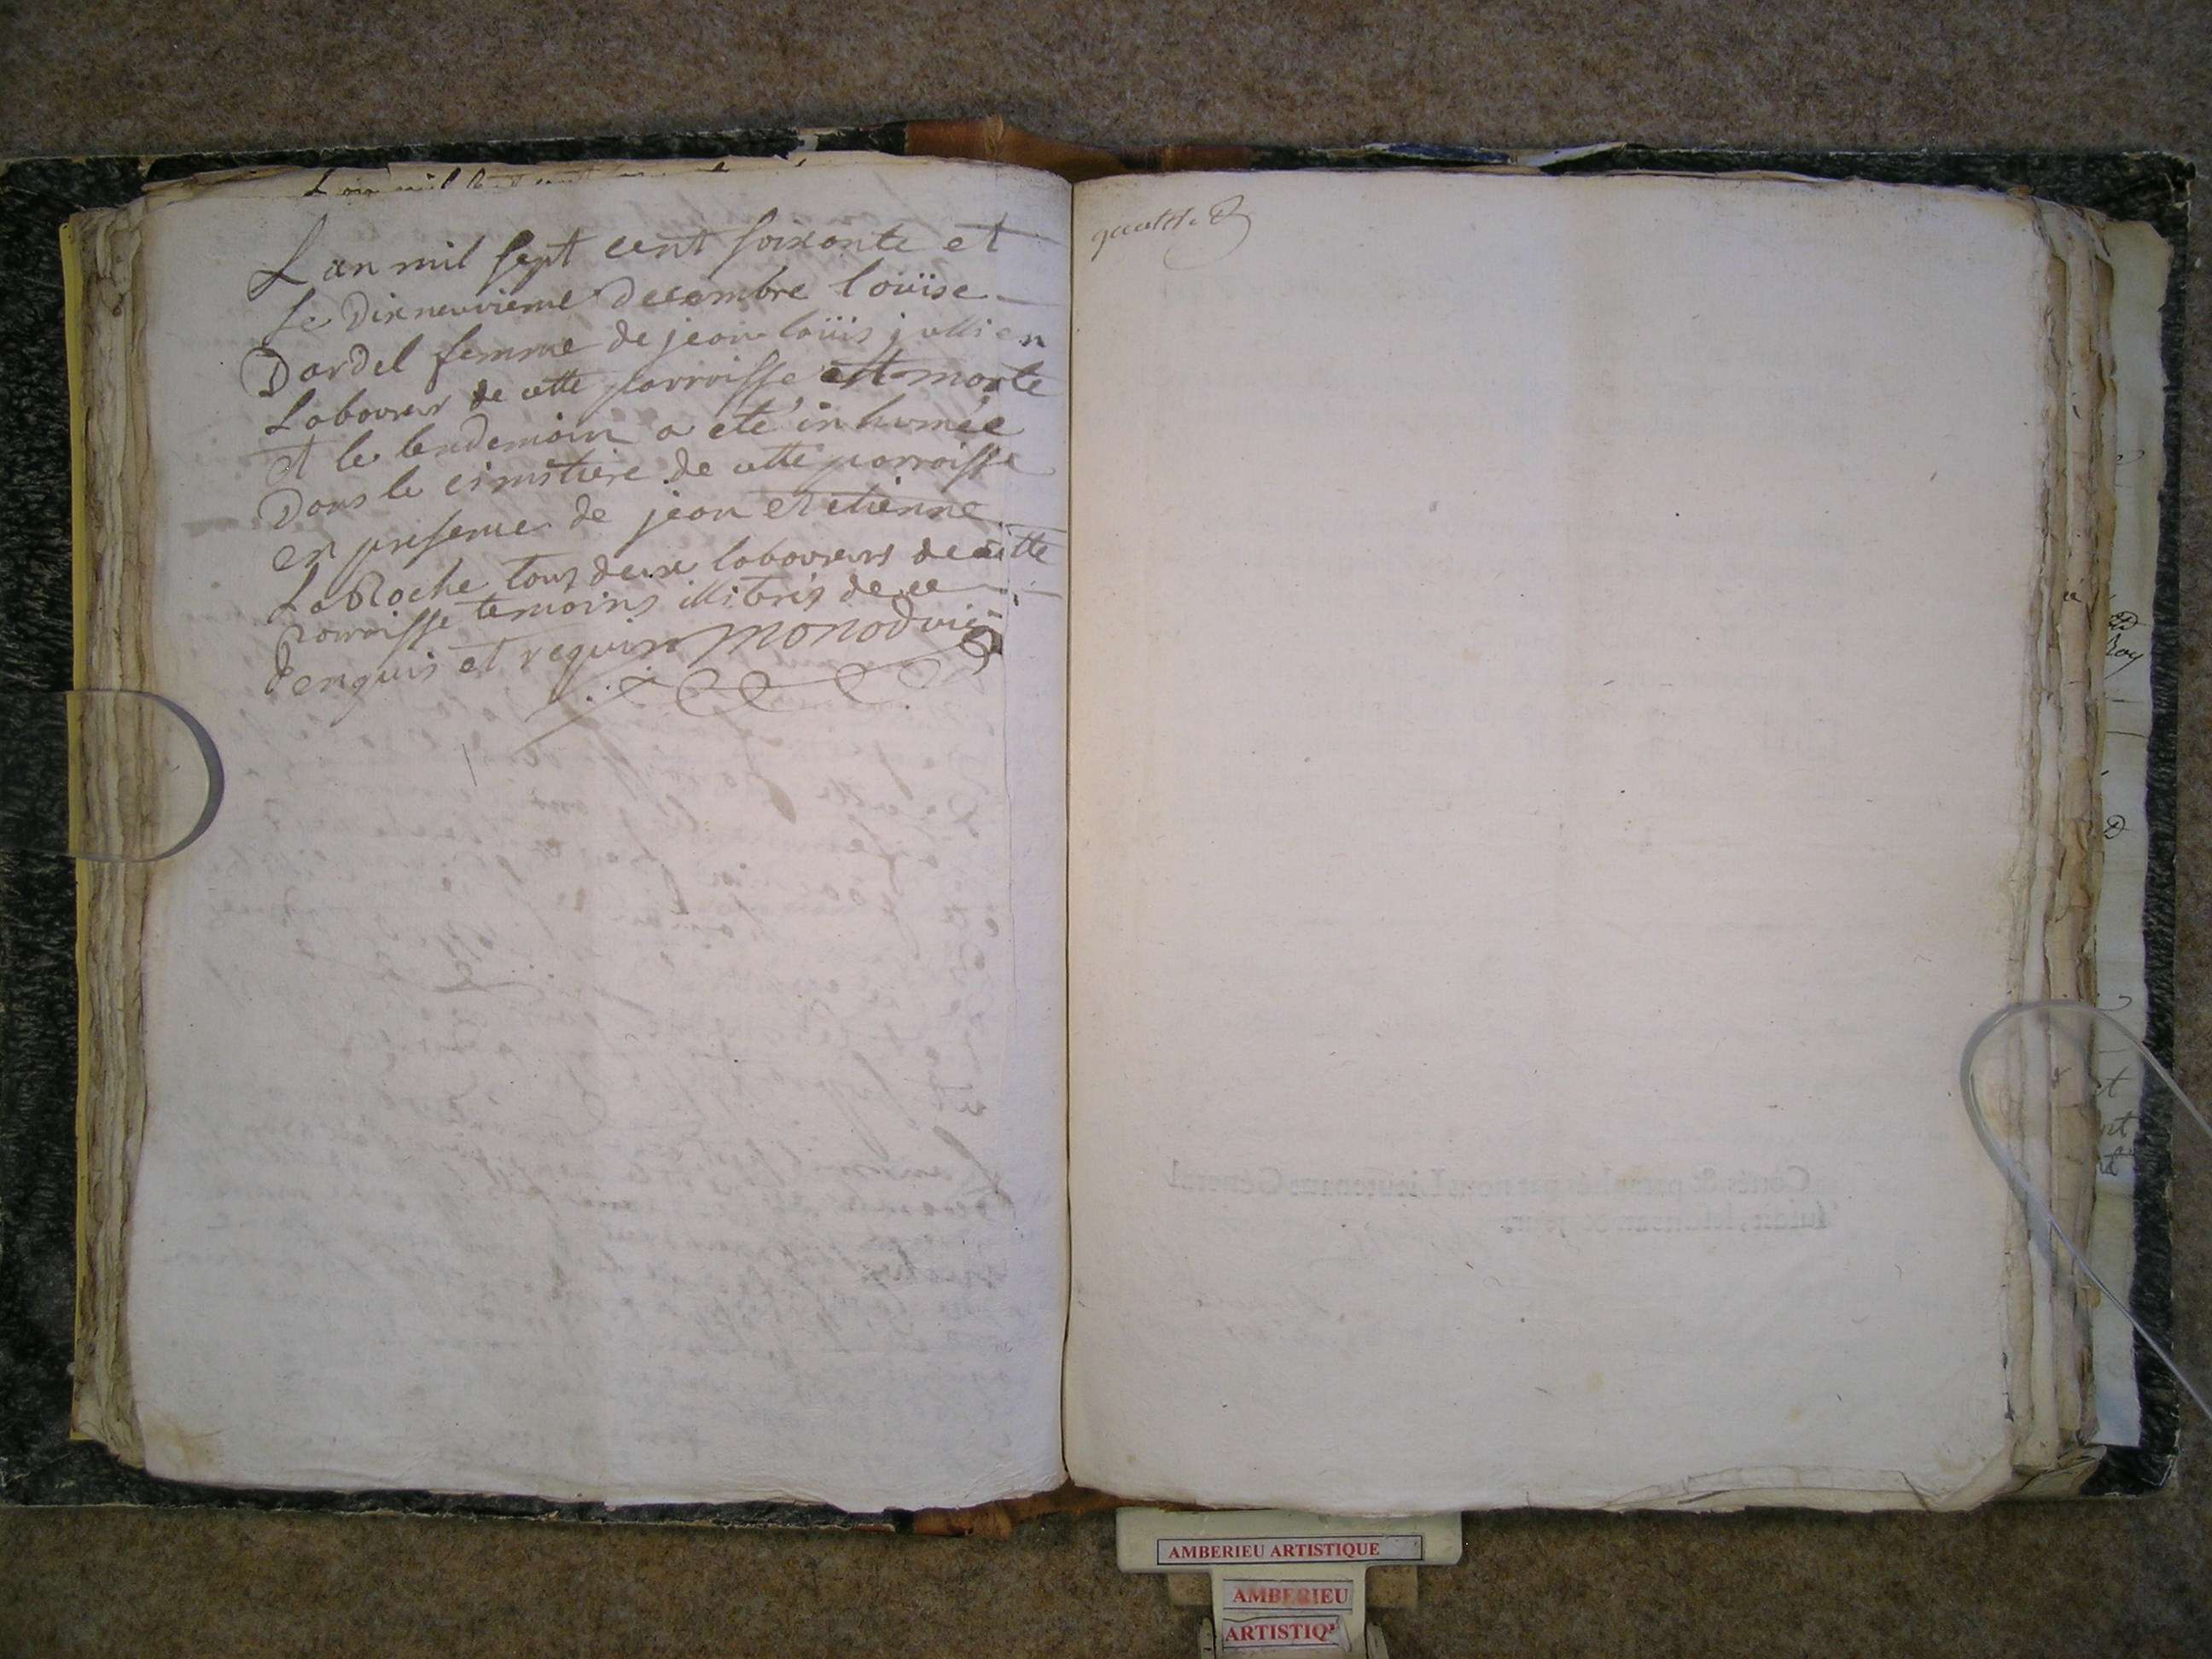 L'an mil sept cent soixante et
le Dixneuvieme decembre loüise
Dardel femme de jean loüis jullien
Laboureur de cette parroisse est morte
et le lendemain a eté inhumée
Dans le cimitiere de cette parroisse
en presence de jean et etienne
LaRoche tous deux laboureurs de cette
Parroisse temoins illiterés de ce
enquis et requis
AMBERIEU ARTISTIQUE
AMBERIEU
ARTISTIQ